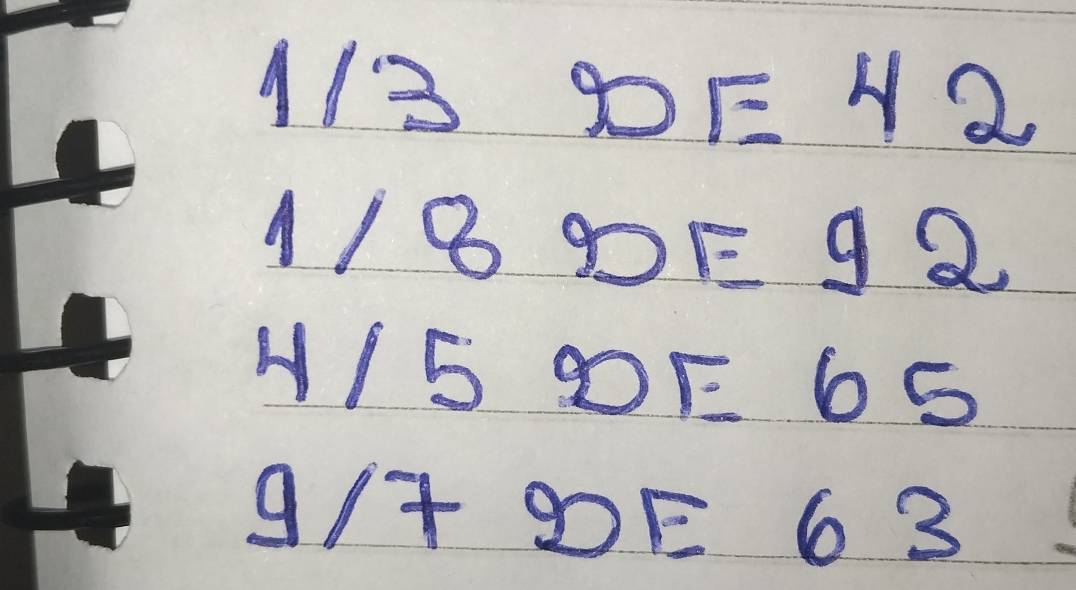 1/3 DE 42
1/8 DE 92
4/5 DE 65
9/7 DE 63